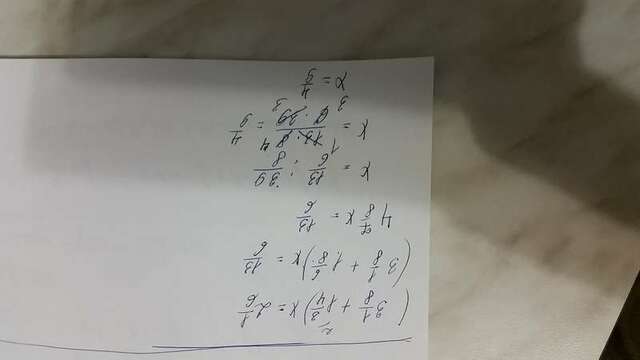 (3 1/8 + 1 3/4 ²) x = 2 1/6
(3 1/8 + 1 6/8) x = 13/6
4 7/8 x = 13/6
x = 13/6 : 39/8
x = 1 13 · 8 4 / 3 6 · 39 3 = 4/9
x = 4/9